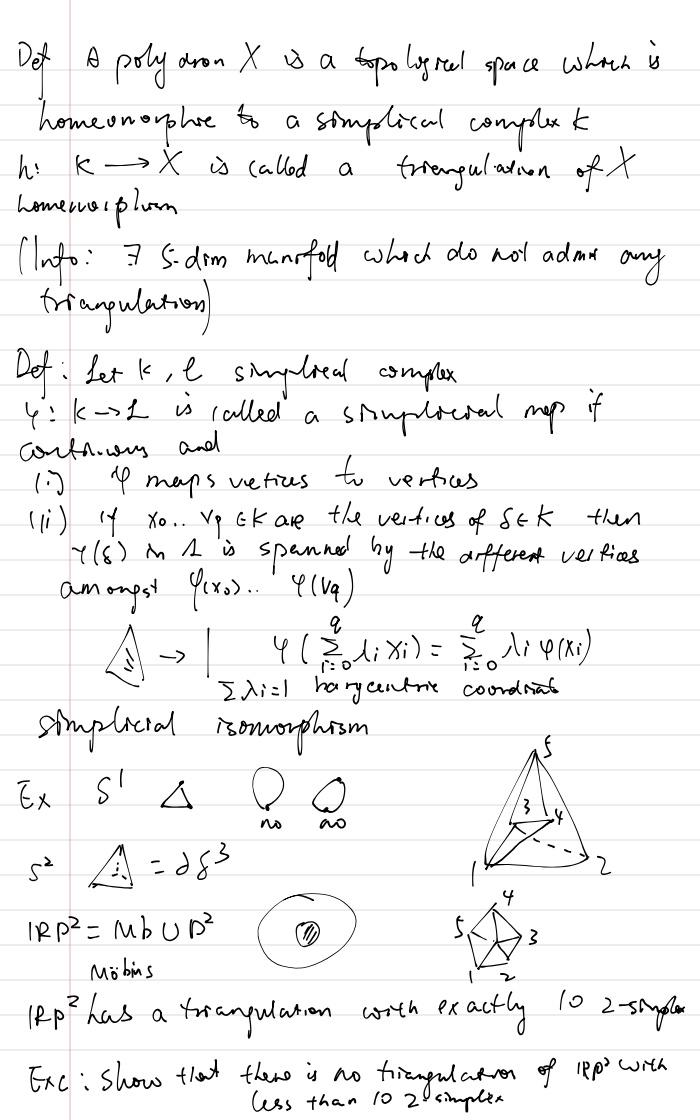 Def A polydron X is a topological space which is
homeomorphic to a simplical complex K
h: K → X is called a triangulation of X
homemorphism
(Info: ∃ 5-dim manifold which do not admit any
triangulation)
Def: Let K, L simplical complex
φ: K → L is called a simplicial map if
continuous and
(i) φ maps vertices to vertices
(ii) if x0.. vq ∈ K are the vertices of δ ∈ K then
φ(δ) in L is spanned by the different vertices
amongst φ(x0).. φ(vq)
→ φ(∑_{i=0}^{q} λi xi) = ∑_{i=0}^{q} λi φ(xi)
∑λi=1 barycentric coordinate
simplicial isomorphism
Ex S¹
no no
5
3 4
1 2
S² = ∂δ³
IRP² = Mb ∪ D²
Möbius
4
5 3
1 2
IRP² has a triangulation with exactly 10 2-simplex
Exc: Show that there is no triangulation of IRP² with
less than 10 2-simplex